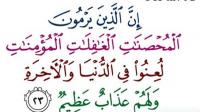 إِنَّ ٱلَّذِينَ يَرْمُونَ
ٱلْمُحْصَنَٰتِ ٱلْغَٰفِلَٰتِ ٱلْمُؤْمِنَٰتِ
لُعِنُوا۟ فِى ٱلدُّنْيَا وَٱلْءَاخِرَةِ
وَلَهُمْ عَذَابٌ عَظِيمٌ ٢٣